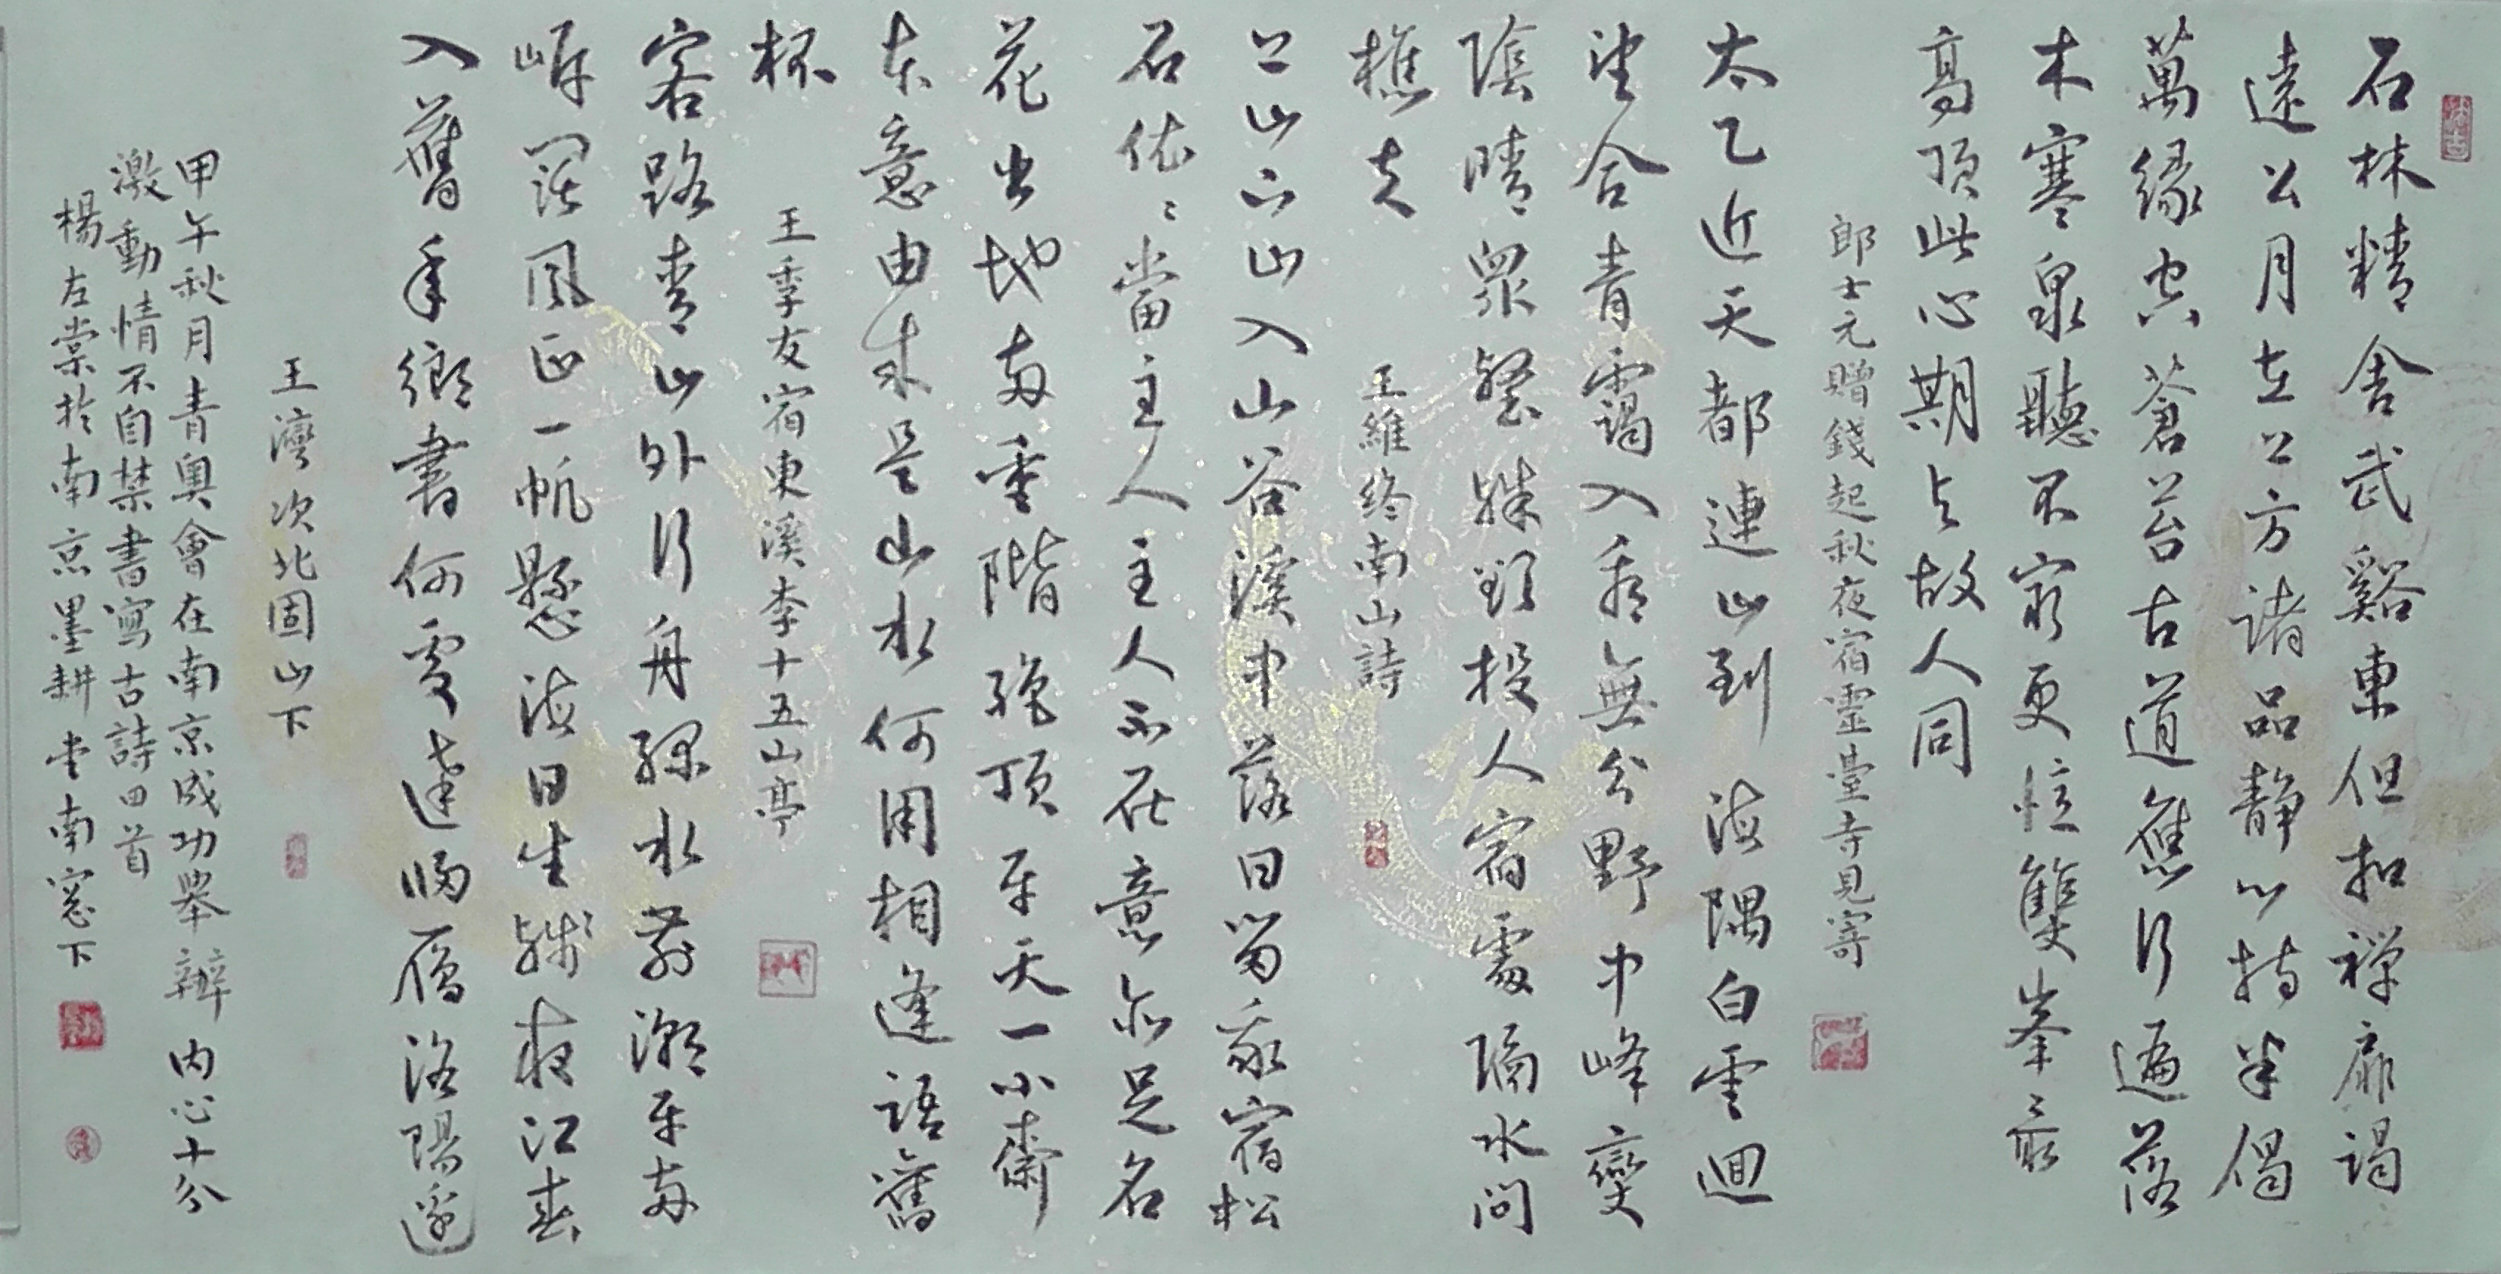 石林精舍武谿東但扣禅扉謁
遠公月在上方諸品静心持半偈
萬緣空蒼苔古道應行遍落
木寒泉聽不窮更憶雙峯最
高頂此心期与故人同
郎士元贈錢起秋夜宿靈臺寺見寄
太乙近天都連山到海隅白雲迴
望合青靄入看無分野中峰變
陰晴眾壑殊欲投人宿處隔水問
樵夫
王維終南山詩
上山下山入山谷溪中落日留我宿松
石依々當主人主人不在意亦足名
花出地兩重階絕頂平天一小齋
本意由来是山水何用相逢語舊
怀
王季友宿東溪李十五山亭
客路青山外行舟綠水前潮平兩
岸闊風正一帆懸海日生殘夜江春
入舊年鄉書何處達歸雁洛陽邊
王灣次北固山下
甲午秋月青奥會在南京成功舉辦内心十分
激動情不自禁書寫古詩四首
楊左棠於南京墨耕堂南窗下